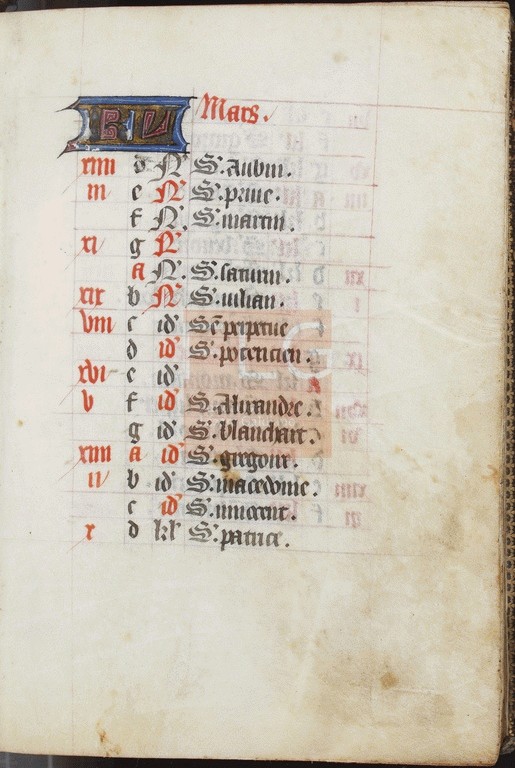 KL Mars.
xiiii d N. S. Aubin.
iii e N. S. priue.
f N. S. martin.
xi g N.
a N. S. saturni.
xix b N. S. iulian.
viii c id' Se perpetue
d id' S. potencien.
xvi e id'
v f id' S. Alixandre.
g id' S. blanchart.
xiiii a id' S. gregoire.
ii b id' S. macedonie.
c id' S. innocent.
x d kl' S. patrice.